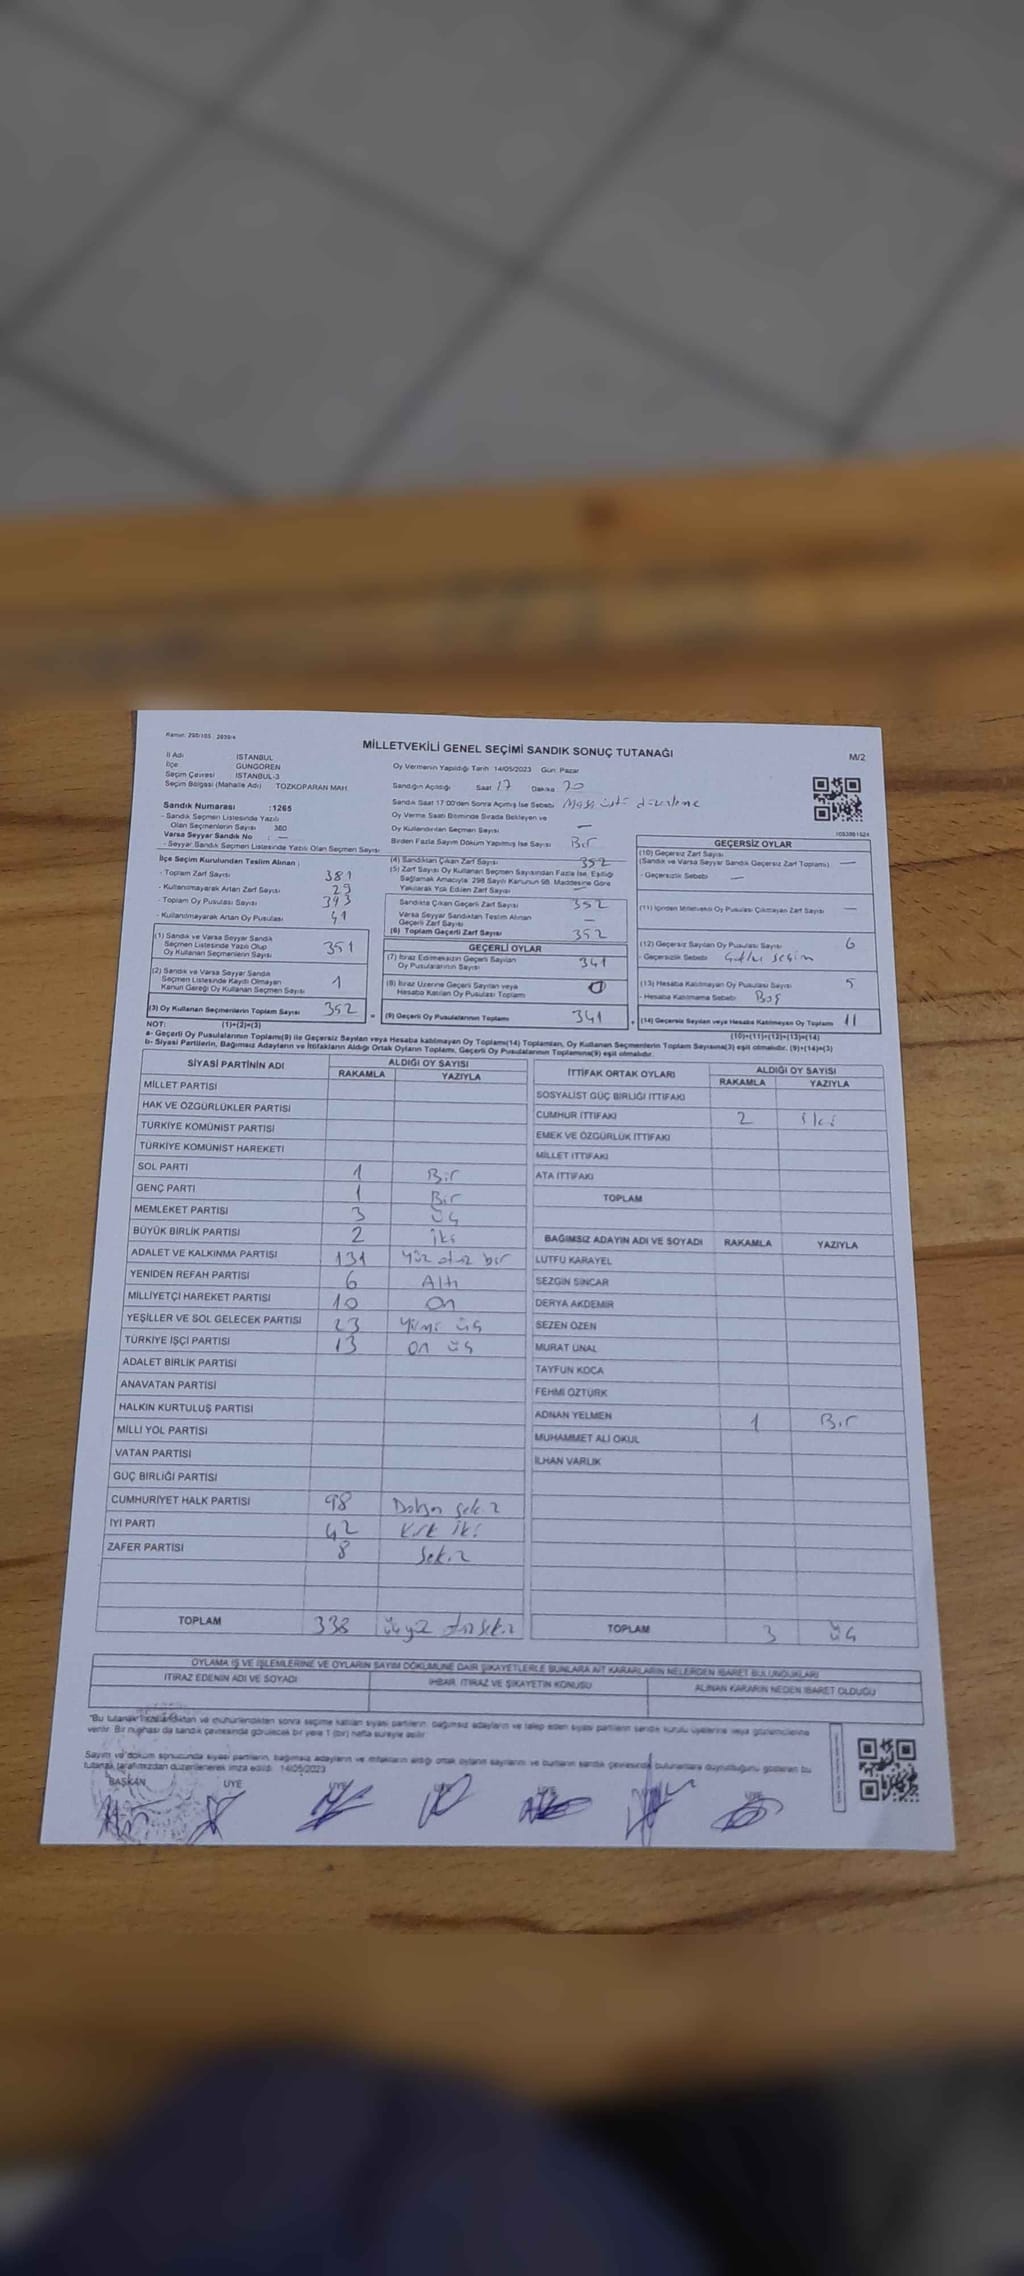 Kanun: 298/105 2839/4
MİLLETVEKİLİ GENEL SEÇİMİ SANDIK SONUÇ TUTANAĞI
M/2
İl Adı İSTANBUL
İlçe GÜNGÖREN
Seçim Çevresi İSTANBUL-3
Seçim Bölgesi (Mahalle Adı) TOZKOPARAN MAH.
Oy Vermenin Yapıldığı Tarih 14/05/2023 Gün: Pazar
Sandığın Açıldığı Saat 17 Dakika 20
Sandık Saat 17:00'den Sonra Açılmış İse Sebebi Masa üstü düzenleme
Oy Verme Saati Bitiminde Sırada Bekleyen ve
Oy Kullandırılan Seçmen Sayısı —
Birden Fazla Sayım Döküm Yapılmış İse Sayısı Bir
Sandık Numarası :1265
- Sandık Seçmen Listesinde Yazılı
Olan Seçmenlerin Sayısı 380
Varsa Seyyar Sandık No : —
- Seyyar Sandık Seçmen Listesinde Yazılı Olan Seçmen Sayısı
İlçe Seçim Kurulundan Teslim Alınan :
- Toplam Zarf Sayısı 381
- Kullanılmayarak Artan Zarf Sayısı 29
- Toplam Oy Pusulası Sayısı 393
- Kullanılmayarak Artan Oy Pusulası 41
(1) Sandık ve Varsa Seyyar Sandık
Seçmen Listesinde Yazılı Olup
Oy Kullanan Seçmenlerin Sayısı 351
(2) Sandık ve Varsa Seyyar Sandık
Seçmen Listesinde Kayıtlı Olmayan
Kanun Gereği Oy Kullanan Seçmen Sayısı 1
(3) Oy Kullanan Seçmenlerin Toplam Sayısı 352
(1)+(2)=(3)
(4) Sandıktan Çıkan Zarf Sayısı 352
(5) Zarf Sayısı Oy Kullanan Seçmen Sayısından Fazla İse, Eşitliği
Sağlamak Amacıyla 298 Sayılı Kanunun 98. Maddesine Göre
Yakılarak Yok Edilen Zarf Sayısı —
Sandıkta Çıkan Geçerli Zarf Sayısı 352
Varsa Seyyar Sandıktan Teslim Alınan
Geçerli Zarf Sayısı —
(6) Toplam Geçerli Zarf Sayısı 352
GEÇERLİ OYLAR
(7) İtiraz Edilmeksizin Geçerli Sayılan
Oy Pusulalarının Sayısı 341
(8) İtiraz Üzerine Geçerli Sayılan veya
Hesaba Katılan Oy Pusulası Toplamı 0
(9) Geçerli Oy Pusulalarının Toplamı 341
1053981524
GEÇERSİZ OYLAR
(10) Geçersiz Zarf Sayısı
(Sandık ve Varsa Seyyar Sandık Geçersiz Zarf Toplamı) —
- Geçersizlik Sebebi —
(11) İçinden Milletvekili Oy Pusulası Çıkmayan Zarf Sayısı —
(12) Geçersiz Sayılan Oy Pusulası Sayısı 6
- Geçersizlik Sebebi seçim
(13) Hesaba Katılmayan Oy Pusulası Sayısı 5
- Hesaba Katılmama Sebebi Boş
(14) Geçersiz Sayılan veya Hesaba Katılmayan Oy Toplamı 11
(10)+(11)+(12)+(13)=(14)
NOT:
a- Geçerli Oy Pusulalarının Toplamı(9) ile Geçersiz Sayılan veya Hesaba katılmayan Oy Toplamı(14) Toplamları, Oy Kullanan Seçmenlerin Toplam Sayısına(3) eşit olmalıdır. (9)+(14)=(3)
b- Siyasi Partilerin, Bağımsız Adayların ve İttifakların Aldığı Ortak Oyların Toplamı, Geçerli Oy Pusulalarının Toplamına(9) eşit olmalıdır.
SİYASİ PARTİNİN ADI ALDIĞI OY SAYISI
RAKAMLA YAZIYLA
MİLLET PARTİSİ
HAK VE ÖZGÜRLÜKLER PARTİSİ
TÜRKİYE KOMÜNİST PARTİSİ
TÜRKİYE KOMÜNİST HAREKETİ
SOL PARTİ 1 Bir
GENÇ PARTİ 1 Bir
MEMLEKET PARTİSİ 3 üç
BÜYÜK BİRLİK PARTİSİ 2 iki
ADALET VE KALKINMA PARTİSİ 131 Yüz otuz bir
YENİDEN REFAH PARTİSİ 6 Altı
MİLLİYETÇİ HAREKET PARTİSİ 10 on
YEŞİLLER VE SOL GELECEK PARTİSİ 23 Yirmi üç
TÜRKİYE İŞÇİ PARTİSİ 13 on üç
ADALET BİRLİK PARTİSİ
ANAVATAN PARTİSİ
HALKIN KURTULUŞ PARTİSİ
MİLLİ YOL PARTİSİ
VATAN PARTİSİ
GÜÇ BİRLİĞİ PARTİSİ
CUMHURİYET HALK PARTİSİ 98 Doksan sekiz
İYİ PARTİ 42 Kırk iki
ZAFER PARTİSİ 8 Sekiz
TOPLAM 338 üçyüz otuzsekiz
İTTİFAK ORTAK OYLARI ALDIĞI OY SAYISI
RAKAMLA YAZIYLA
SOSYALİST GÜÇ BİRLİĞİ İTTİFAKI
CUMHUR İTTİFAKI 2 iki
EMEK VE ÖZGÜRLÜK İTTİFAKI
MİLLET İTTİFAKI
ATA İTTİFAKI
TOPLAM
BAĞIMSIZ ADAYIN ADI VE SOYADI RAKAMLA YAZIYLA
LÜTFÜ KARAYEL
SEZGİN SİNCAR
DERYA AKDEMİR
SEZEN ÖZEN
MURAT ÜNAL
TAYFUN KOCA
FEHMİ ÖZTÜRK
ADNAN YELMEN 1 Bir
MUHAMMET ALİ OKUL
İLHAN VARLIK
TOPLAM 3 üç
OYLAMA İŞ VE İŞLEMLERİNE VE OYLARIN SAYIM DÖKÜMÜNE DAİR ŞİKAYETLERLE BUNLARA AİT KARARLARIN NELERDEN İBARET BULUNDUKLARI
İTİRAZ EDENİN ADI VE SOYADI İHBAR, İTİRAZ VE ŞİKAYETİN KONUSU ALINAN KARARIN NEDEN İBARET OLDUĞU
"Bu tutanak imzalandıktan ve mühürlendikten sonra seçime katılan siyasi partilerin, bağımsız adayların ve talep eden siyasi partilerin sandık kurulu üyelerine veya gözlemcilerine
verilir. Bir nüshası da sandık çevresinde görülecek bir yere 1 (bir) hafta süreyle asılır.
Sayım ve döküm sonucunda siyasi partilerin, bağımsız adayların ve ittifakların aldığı ortak oyların sayılarını ve bunların sandık çevresinde bulunanlara duyurulduğunu gösteren bu
tutanak tarafımızdan düzenlenerek imza edildi. 14/05/2023
BAŞKAN ÜYE ÜYE ÜYE ÜYE ÜYE ÜYE